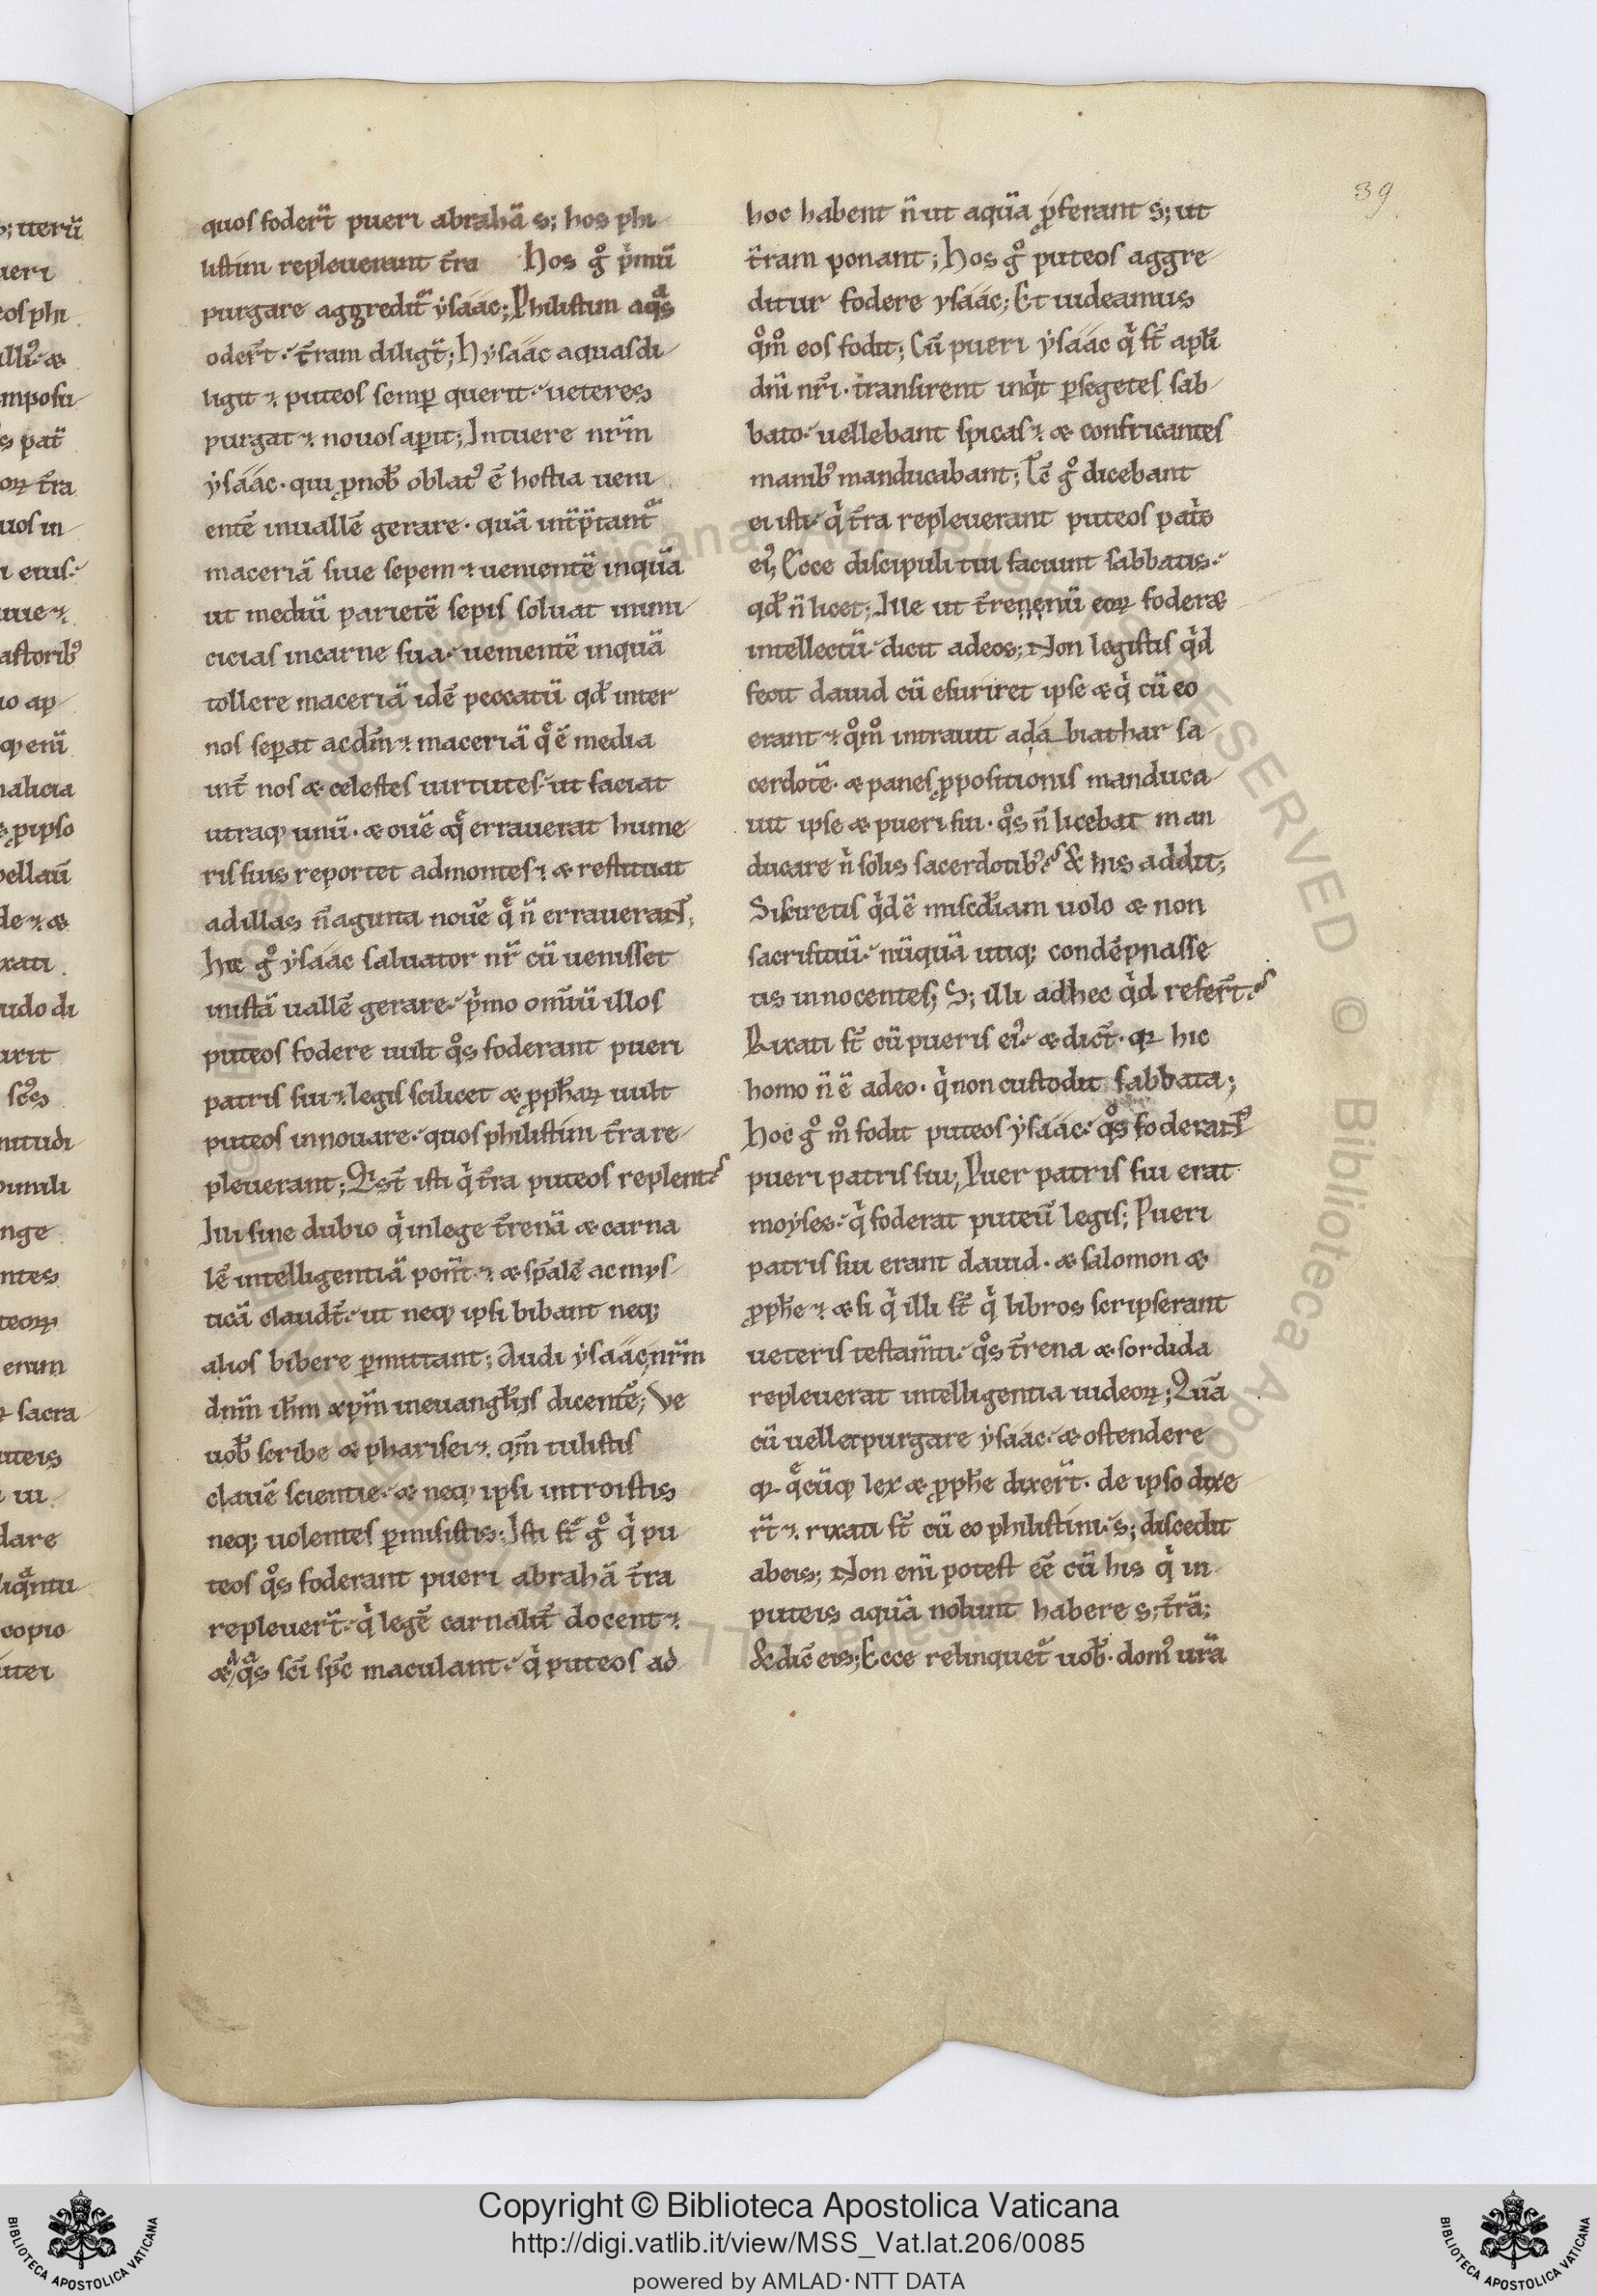 39
quos foder̃t pueri abrahã s; hos phi
listim repleuerunt t̃ra Hos gͦ pͥmũ
purgare aggreditᷣ ẏsáác; Philistim aqᷓs
oder̃t. t̃ram diligt̃; H ẏsáác aquas di
ligit ⁊ puteos semꝑ querit. ueteres
purgat ⁊ nouos aꝑit; Intuere nr̃m
ẏsáác. qui ꝓ nob̃ oblatꝰ ẽ hostia ueni
entẽ in uallẽ gerare. quã int̃p̃tantᷣ
maceriã siue sepem ⁊ uenientẽ inquã
ut mediũ parietẽ sepis soluat inimi
cicias in carne sua. uenientẽ inquã
tollere maceriã idẽ peccatũ qd̃ inter
nos seꝑat ac dm̃ ⁊ maceriã qͤ ẽ media
int̃ nos æ celestes uirtutes. ut faciat
utraqꝫ unũ. æ ouẽ qͤ errauerat hume
ris suis reportet ad montes ⁊ æ restituat
ad illas ñ aginta nouẽ qͤ ñ errauerant;
Hic gͦ ẏsáác saluator nr̃ cũ uenisset
in istã uallẽ gerare. pͥmo om̃iũ illos
puteos fodere uult qͦs foderant pueri
patris sui ⁊ legis scilicet æ ꝓph̃aꝝ uult
puteos innouare. quos philistim t̃ra re
pleuerant; Q̃ s̃t isti qͥ t̃ra puteos replent?
Illi sine dubio qͥ in lege t̃renã æ carna
lẽ intelligentiã pont̃ ⁊ æ sp̃alẽ ac mys
ticã claudt̃. ut neqꝫ ipsi bibant neqꝫ
alios bibere ꝑmittant; Audi ẏsáác nr̃m
dnm̃ ih̃m xp̃m in euangl̃iis dicentẽ; Ve
uob̃ scribe æ pharisei ⁊ qm̃ tulistis
clauẽ scientie. æ neqꝫ ipsi introistis
neqꝫ uolentes ꝑmisistis; Isti st̃ gͦ qͥ pu
teos qͦs foderant pueri abrahã t̃ra
repleuer̃t. qͥ legẽ carnalit̃ docent ⁊
æ aqᷓs sc̃i sp̃c maculant. qͥ puteos ad
hoc habent ñ ut aquã ꝓferant s; ut
t̃ram ponant; Hos gͦ puteos aggre
ditur fodere ysáác; Et uideamus
qͦmͦ eos fodit; Cũ pueri ẏsáác qͥ st̃ apl̃i
dñi nr̃i. transirent inqͥt ꝑ segetes sab
bato. uellebant spicas ⁊ æ confricantes
manibꝰ manducabant; Tc̃ gͦ dicebant
ei isti. qͥ t̃ra repleuerant puteos patͥs
eiꝰ; Ecce discipuli tui faciunt sabbatis.
qd̃ ñ licet; Ille ut t̃renenũ eoꝝ foderæ
intellectũ. dicit ad eos; Non legistis qͥd
fecit dauid cũ esuriret ipse æ qͥ cũ eo
erant ⁊ qͦmͦ intrauit ad a biathar sa
cerdotẽ. æ panes ꝓpositionis manduca
uit ipse æ pueri sui. qͦs ñ licebat man
ducare nͥ solis sacerdotibꝰ? & his addit;
Si sciretis qͥd ẽ misc̃diam uolo æ non
sacrificiũ. nũquã utiqꝫ condẽpnasse
tis innocentes; S; illi ad hec qͥd refer̃t?
Rixati st̃ cũ pueris eiꝰ. æ dicr̃t. qꝛ hic
homo ñ ẽ a deo. qͥ non custodit sabbata;
Hoc gͦ mͦ fodit puteos ẏsáác. qͦs foderant
pueri patris sui; Puer patris sui erat
moẏses. qͥ foderat puteũ legis; Pueri
patris sui erant dauid. æ salomon æ
ꝓph̃e ⁊ æ si qͥ illi st̃ qͥ libros scripserant
ueteris testam̃ti. qͦs t̃rena æ sordida
repleuerat intelligentia iudeoꝝ; Quã
cũ uellet purgare ẏsáác. æ ostendere
qꝛ qͤcũqꝫ lex æ ꝓph̃e dixer̃t. de ipso dixe
r̃t ⁊ rixati st̃ cũ eo philistini. s; discedit
ab eis; Non eni potest eẽ cũ his qͥ in
puteis aquã nolunt habere s; t̃rã;
& dic̃ eis; Ecce relinquetᷣ uob̃. domꝰ ur̃a
Copyright © Biblioteca Apostolica Vaticana
http://digi.vatlib.it/view/MSS_Vat.lat.206/0085
powered by AMLAD·NTT DATA
BIBLIOTECA APOSTOLICA VATICANA
BIBLIOTECA APOSTOLICA VATICANA